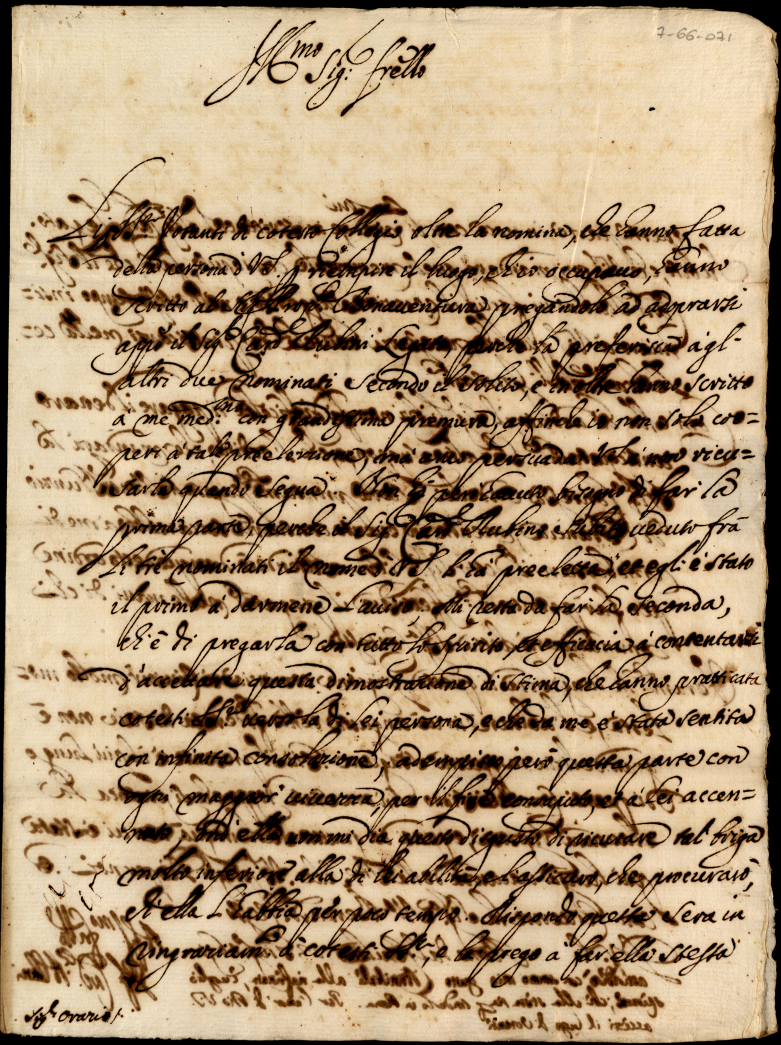 7-66-071
Ill.mo
Sig: frello
Li SS.ri Votanti di cotesto Collegio oltre la nomina, che hanno fatta
della persona di VS. p riempire il luogo, ch'io occupavo, hanno
scritto al Bonaventura pregandolo ad adoprarsi
app.o il Sig. Card. Rubini Legato, perche la preferisca à gl'
altri due nominati secondo il solito, e inoltre hanno scritto
a me med.mo con grandissima premura, affinche io non solo coo=
peri à tale preelezione, mà anco persuada VS. à non ricu=
sarla quando segua. Non hò però havuto bisogno di far la
prima parte, perche il Sig. Card. Rubino veduto frà
li trè nominati il nome di VS. l'hà preeletta, et egli è stato
il primo à darmene l'aviso, mi resta da far la seconda,
ch'è di pregarla con tutto lo spirito, et efficacia à contentarsi
d'accettare questa dimostrazione di stima, che hanno pratticata
cotesti SS.ri verso la di lei persona, e che da me è stata sentita
con infinita consolazione, adempisco però questa parte con
ogni maggior viverezza, per il fine conosciuto, et à lei accen=
nato, ond'ella non mi dia questo disgusto di ricusare tal briga
molto inferiore alla di lei abilità, e l'assicuro, che procurarò,
ch'ella l'habbia per poco tempo. Rispondo questa sera in
ringraziam.to à cotesti SS.ri, e la prego a far ella stessa
Sig.r Orazio